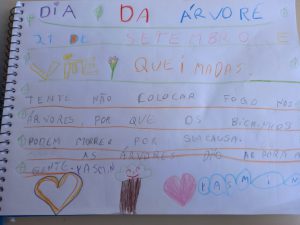 DIA DA ÁRVORE
21 DE SETEMBRO E
QUEIMADAS.
TENTE NÃO COLOCAR FOGO NAS
ÁRVORES, POR QUE OS BICHINHOS
PODEM MORRER POR SUA CAUSA.
AS ÁRVORES DÃO AR PARA A
GENTE. YASMIN
YASMIN